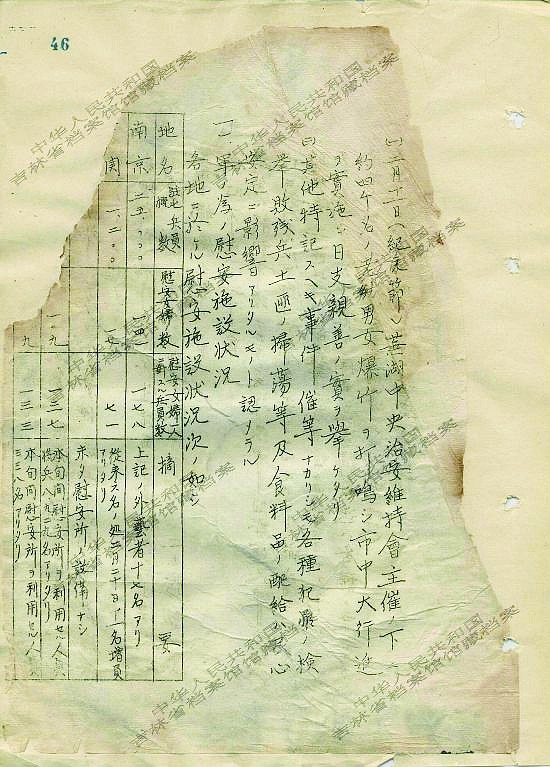 46
㈠二月十一日(紀元節)蕪湖中央治安維持會主催ノ下ニ
約四千名ノ老若男女爆竹ヲ打鳴シ市中大行進
ヲ實施シ日支親善ノ實ヲ擧ケタリ
㈡其他特記スヘキ事件ノ催等ナカリシモ各種犯罪ノ檢
擧敗残兵土匪ノ掃蕩等及食料品ノ配給ハ人心
安定ニ影響アリタルモノト認メラル
一 軍ノ為ノ慰安施設状況
各地ニ於ケル慰安施設状況次ノ如シ
地名
兵員
概数
慰安婦ノ数
慰安婦一人
ニ對スル兵員数
摘要
南京
二五、〇〇〇
一四一
一七八
上記ノ外藝者十七名アリ
関
一、二〇〇
一七
七一
従来ス名ノ処二月二十日一一名増員
アリタリ
未タ慰安所ノ設備ナシ
一〇九
一三七
本旬間慰安所ヲ利用セル人
将兵八九二九名アリタリ
九
一三三
本旬間慰安所ヲ利用セル人
三三八名アリタリ
中华人民共和国
吉林省档案馆馆藏档案